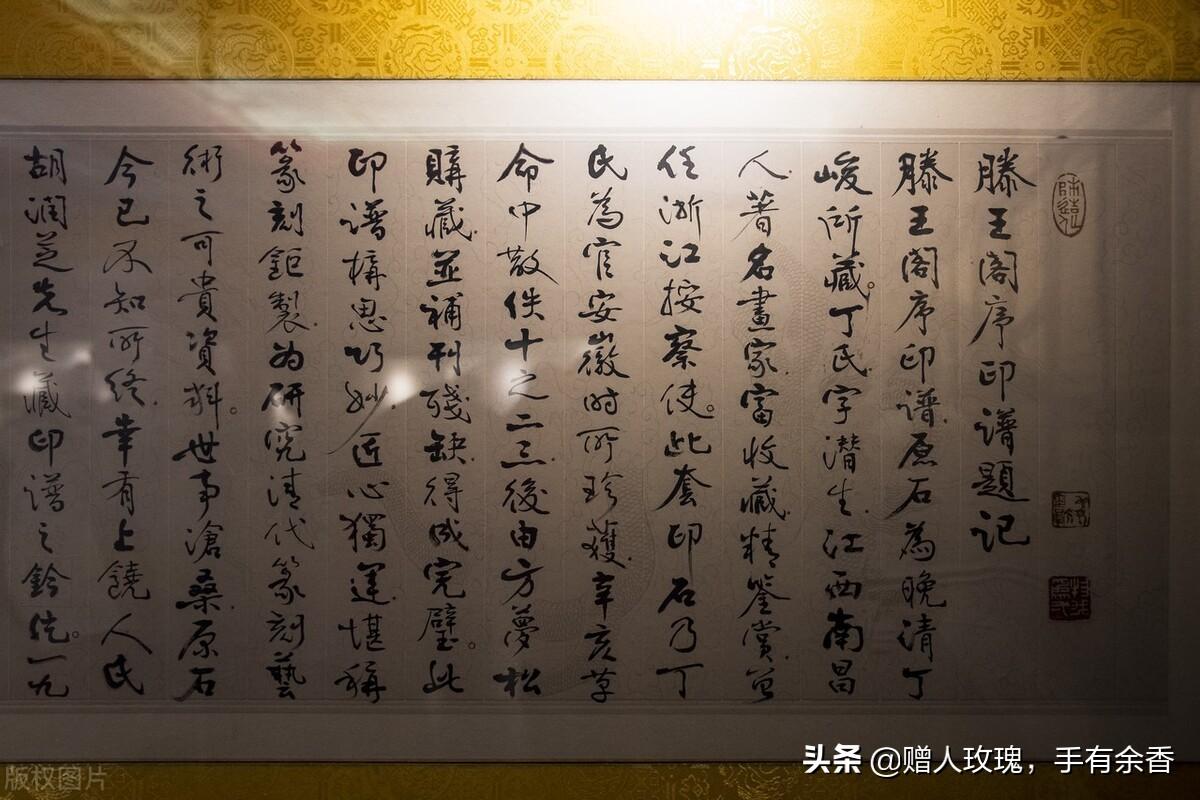 滕王阁序印谱題记
滕王阁序印谱。原石為晚清丁
峻所藏。丁氏字潛生。江西南昌
人。著名畫家。富收藏。精鉴赏。曾
任浙江按察使。此套印石乃丁
氏為官安徽时所珍獲。辛亥革
命中散佚十之二三。後由方夢松
購藏。並補刊殘缺。得成完璧。此
印谱構思巧妙。匠心獨運。堪稱
篆刻鉅製。为研究清代篆刻藝
術之可貴資料。世事滄桑。原石
今已不知所終。幸有上饒人氏
胡润芝先生藏印谱之鈐佐。一九
头条 @赠人玫瑰，手有余香
版权图片